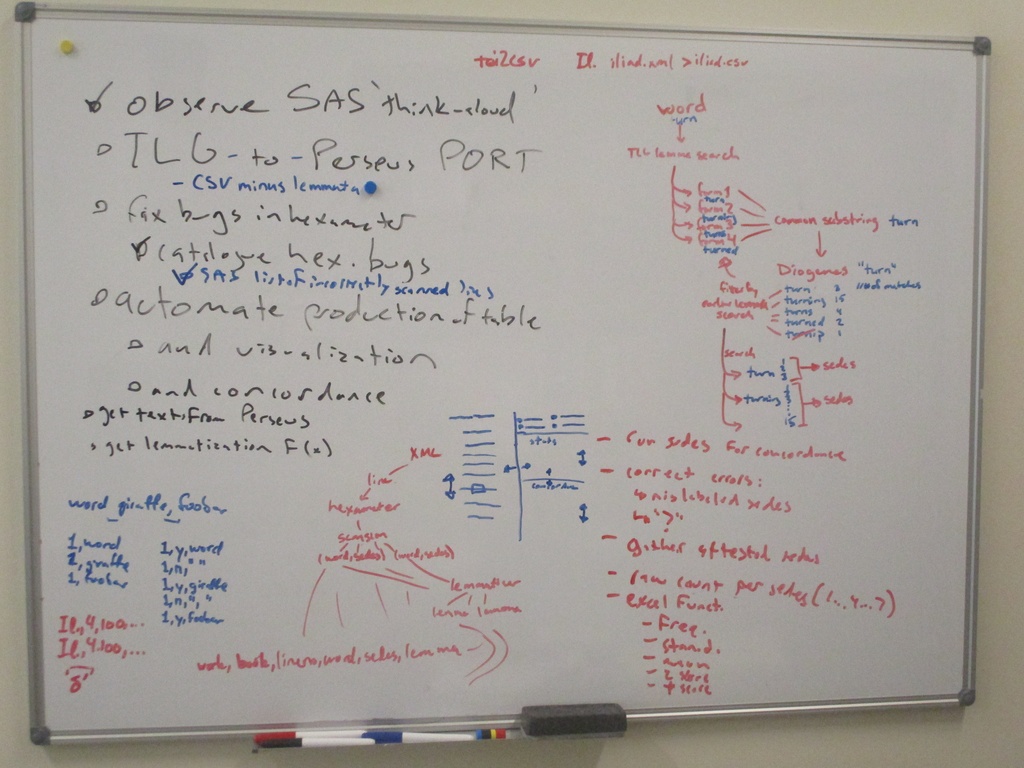 tei2csv Il. iliad.xml > iliad.csv
observe SAS 'think-aloud'
TLG-to-Perseus PORT
- CSV minus lemmata
fix bugs in hexameter
catalogue hex. bugs
SAS list of incorrectly scanned lines
automate production of table
and visualization
and concordance
get texts from Perseus
get lemmatization F(x)
word giraffe, foobar
1, word
2, giraffe
1, foobar
1, y, word
1, n, " "
1, y, giraffe
1, n, ", "
1, y, foobar
Il, 4, 100...
Il, 4.100, ...
XML
line
hexameter
scansion
(word, sedes) (word, sedes)
lemmatizer
lemma lemma
work, book, lineno, word, sedes, lemma
stats
word
TLG lemma search
form 1
turn
form 2
turning
form 3
turns
form 4
turned
common substring turn
Diogenes "turn"
# of matches
turn 3
turning 15
turns 4
turned 2
turnip 1
filter by
earlier lemma
search
search
turn 1 2 3 sedes
turning 1 2 3 15 sedes
- run sedes for concordance
- correct errors:
mislabeled sedes
"?"
- gather attested sedes
- raw count per sedes (1.. 4... 7)
- excel funct.
- Freq.
- stand.
- mean
- z score